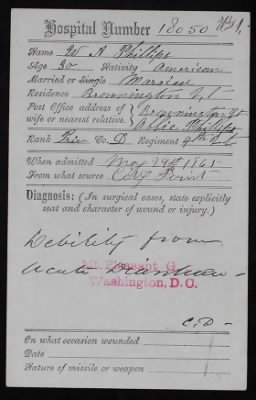 Hospital Number 18050
Name W A Phillips
Age 20 Nativity American
Married or Single Married
Residence Brownington Vt
Post Office address of wife or nearest relative. Brownington Vt
Abbie Phillips
Rank Priv Co. D Regiment 4th Vt
When admitted May 29th 1865
From what source City Point
Diagnosis: (In surgical cases, state explicitly
seat and character of wound or injury.)
Debility from
Acute Diarrhoea -
Mt. Pleasant G.
Washington, D.C.
C.D-
On what occasion wounded
Date
Nature of missile or weapon